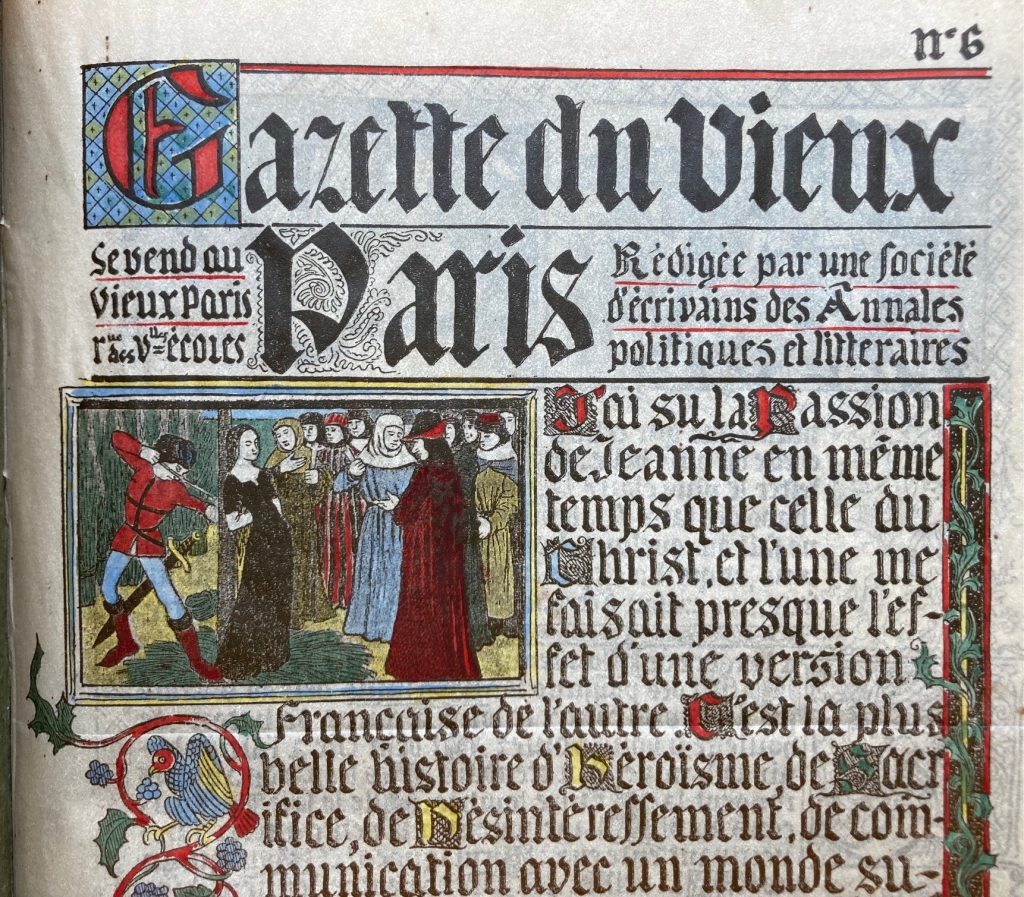 nº 6
Gazette du Vieux
Paris
Se vend au
Vieux Paris
rue des Vlles écoles
Rédigée par une société
d'écrivains des Annales
politiques et litteraires
J'ai su la Passion
de Jeanne en même
temps que celle du
Christ, et l'une me
faisait presque l'ef-
fet d'une version
Française de l'autre C'est la plus
belle histoire d'Héroïsme, de Sacr
ifice, de Désintéressement, de com-
munication avec un monde su-